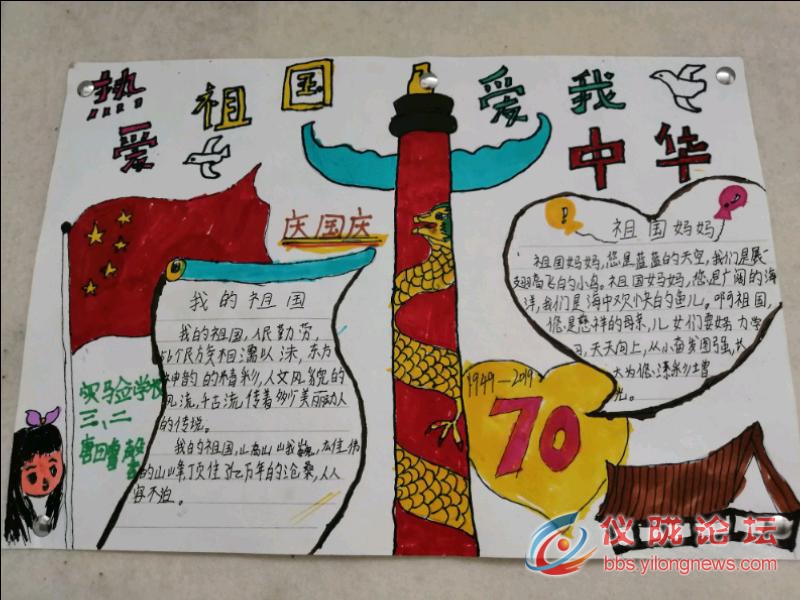 热爱祖国
爱我中华
庆国庆
我的祖国
我的祖国,人民勤劳,
56个民族相濡以沫,东方
神韵的精彩,人文风貌的
风流,千古流传着
美丽动人
的传说。
我的祖国,
的山峰顶住亿万年的沧桑,从
容不迫。
实验学校
三、二
1949—2019
70
祖国妈妈
祖国妈妈,您是蓝蓝的天空,我们是展
翅高飞的小鸟。祖国妈妈,您是广阔的海
洋,我们是海中欢快的鱼儿。啊祖国,
您是慈祥的母亲,儿女们要
习,天天向上,从小奋发图强,长
大为您添彩增
光。
仪陇论坛
bbs.yilongnews.com